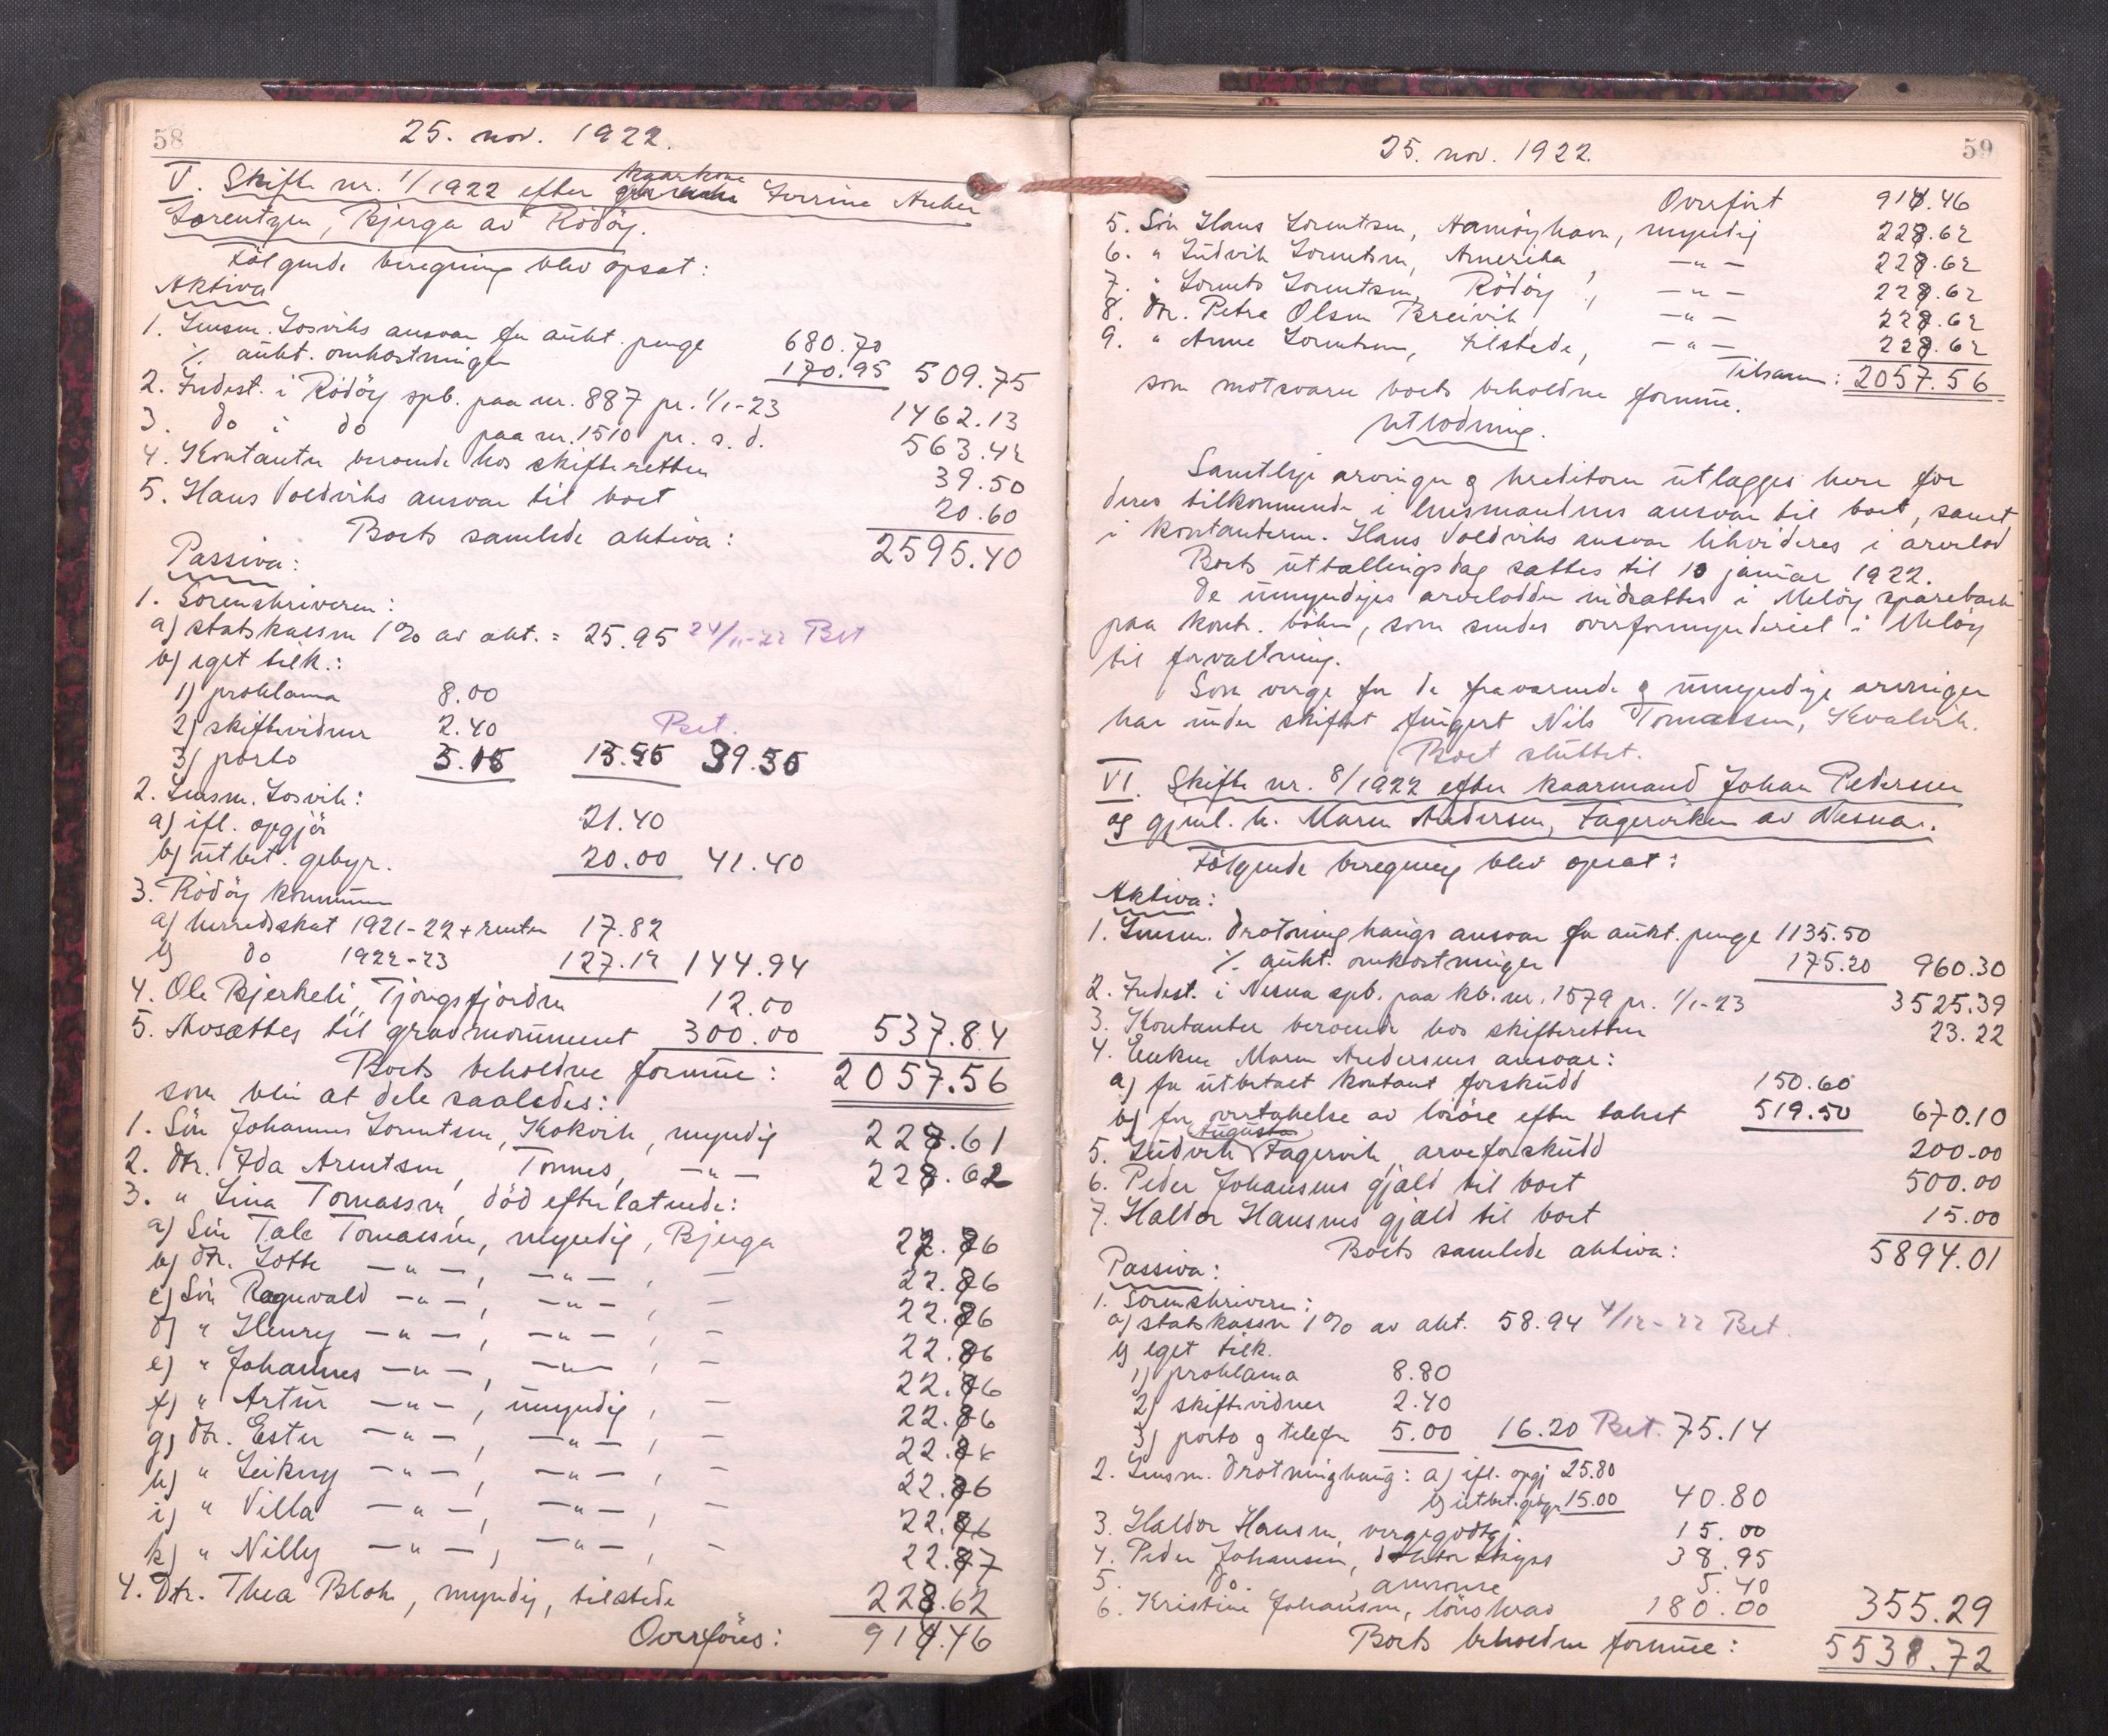 58
25. nov. 1922.
V. Skifte nr. 1/1922 efter kaarkone Lovrine Anker
Lorentzen, Bjerga av Rödöy.
Følgende beregning blev opsat:
Aktiva
1. Lensm. Losviks ansvar for aukt. penge 680.70
÷ aukt. omkostninger 170.95 509.75
2. Indest. i Rödöy spb. paa nr. 887 pr. 1/1-23 1462.13
3. do i do paa nr. 1510 pr. s. d. 563.42
4. Kontanter beroende hos skifteretten 39.50
5. Hans Voldviks ansvar til boet 20.60
Boets samlede aktiva: 2595.40
Passiva:
1. Sorenskriveren:
a) statskassen 1% av akt. = 25.95 24/11-22 Bet
b) eget tilk.:
1) proklama 8.00
2) skiftevidner 2.40 Bet.
3) porto 3.15 13.55 39.50
2. Lensm. Losvik:
a) ifl. opgjör 21.40
b) utbet. gebyr. 20.00 41.40
3. Rödöy kommune
a) herredsskat 1921-22 + renter 17.82
b) do 1922-23 127.12 144.94
4. Ole Bjerkeli, Tjongsfjorden 12.00
5. Avsættes til gravmonument 300.00 537.84
Boets beholdne formue: 2057.56
som blir at dele saaledes:
1. Sön Johannes Lorentsen, Kokvik, myndig 228.61
2. dtr. Ida Arentsen, Tonnes, —"— 228.62
3. " Lina Tomassen, död efterlatende:
a) Sön Tale Tomassen, myndig, Bjerga 22.86
b) dtr. Lotte —"—, —"—, — 22.86
c) Sön Ragnvald —"—, —"—, — 22.86
d) " Henry —"—, —"—, — 22.86
e) " Johannes —"—, —"—, — 22.86
f) " Artur —"—, umyndig, — 22.86
g) dtr. Ester —"—, —"—, — 22.86
h) " Leikny —"—, —"—, — 22.86
i) " Villa —"—, —"—, — 22.86
k) " Nilly —"—, —"—, — 22.87
4. Dtr. Thea Blok, myndig, tilstede 228.62
Overföres: 914.46
59
25. nov. 1922.
Overfört 914.46
5. Sön Hans Lorentsen, Hamöyhavn, myndig 228.62
6. " Ludvik Lorentsen, Amerika, —"— 228.62
7. " Lorents Lorentsen, Rödöy, —"— 228.62
8. Dtr. Petra Olsen Breivik —"— 228.62
9. " Anne Lorentsen, tilstede, —"— 228.62
Tilsam: 2057.56
som motsvarer boets beholdne formue.
Utlodning.
Samtlige arvinger og kreditorer utlægges herr for
deres tilkommende i lensmandens ansvar til boet, samt
i kontanterne. Hans Voldviks ansvar likvideres i arvelod
Boets uttællingsdag sattes til 10 januar 1922.
De umyndiges arvelodder indsættes i Melöy sparebank
paa kontr. böker, som sendes overformynderiet i Melöy
til forvaltning.
Som verge for de fraværende og umyndige arvinger
har under skiftet fungert Nils Tomassen, Kvalvik.
Boet sluttet.
VI. Skifte nr. 8/1922 efter kaarmand Johan Pedersen
og gjenl. h. Maren Andersen, Fagerviken av Nesna.
Følgende beregning blev opsat:
Aktiva:
1. Lensm. Drotninghaugs ansvar for aukt. penge 1135.50
÷ aukt. omkostninger 175.20 960.30
2. Indest. i Nesna spb. paa kb. nr. 1579 pr. 1/1-23 3525.39
3. Kontanter beroende hos skifteretten 23.22
4. Enken Maren Andersens ansvar:
a) for utbetalt kontant forskudd 150.60
b) for overtakelse av lösöre efter takst 519.50 670.10
5. Ludvik Augusta Fagervik, arveforskudd 200.00
6. Peder Johansens gjæld til boet 500.00
7. Haldor Hansens gjæld til boet 15.00
Boets samlede aktiva: 5894.01
Passiva:
1. Sorenskriveren:
a) statskassen 1% av akt. 58.94 4/12-22 Bet.
b) eget tilk.
1) proklama 8.80
2) skiftevidner 2.40
3) porto og telefon 5.00 16.20 Bet. 75.14
2. Lensm. Drotninghaug: a) ifl. opgj 25.80
b) utbet. gebyr 15.00 40.80
3. Haldor Hansen, vergegodtgj. 15.00
4. Peder Johansen, doktorskyss 38.95
5. do. annonse 5.40
6. Kristine Johansen, lönskrav 180.00 355.29
Boets beholdne formue: 5538.72